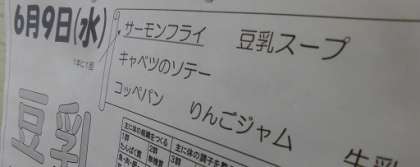 6月9日(水)
サーモンフライ 豆乳スープ
キャベツのソテー
コッペパン りんごジャム 牛乳
豆乳
主に体の組織をつくる 主に体の調子を整
1群 2群 3群
たんぱく質 無機質